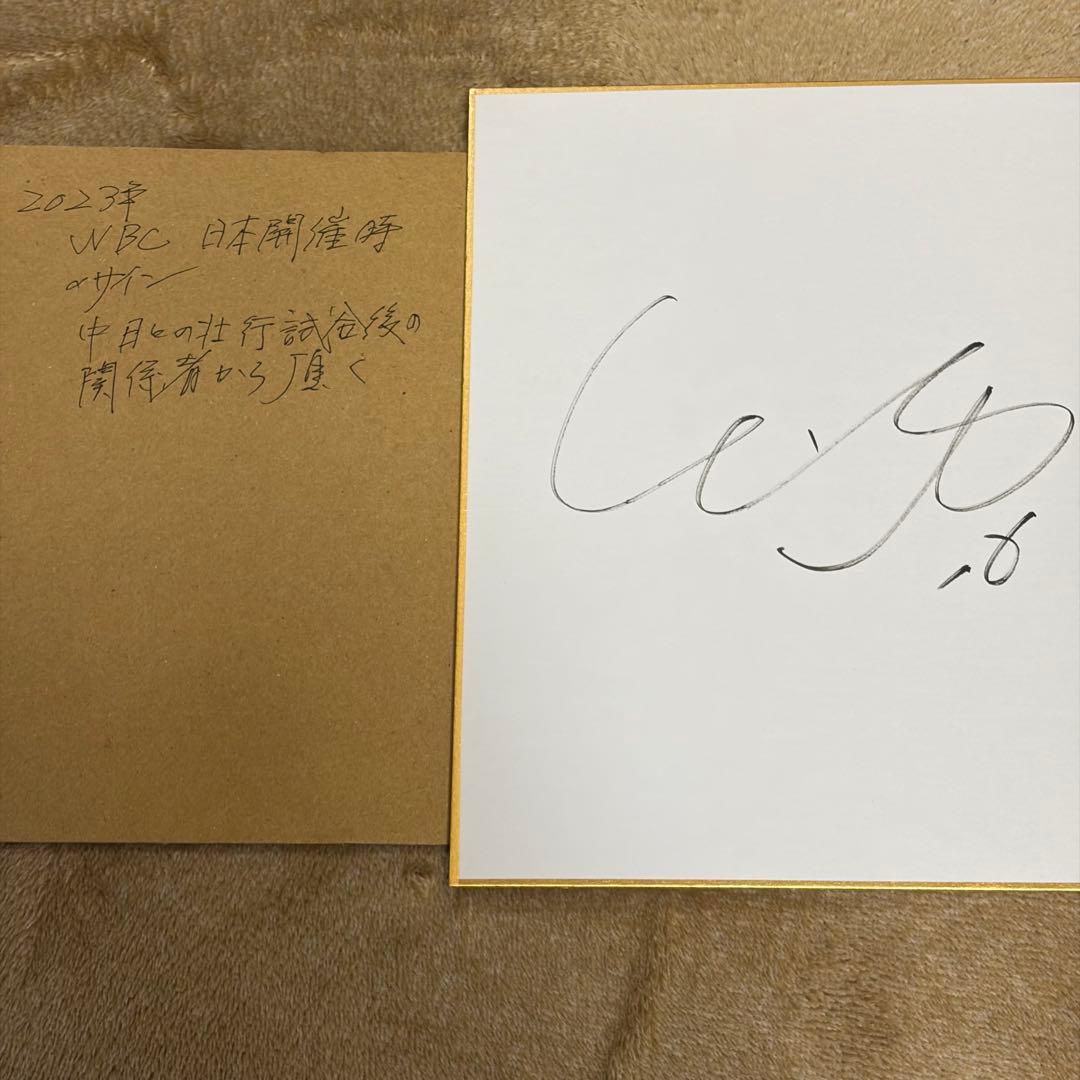 2023年
WBC 日本開催時
のサイン
中日との壮行試合後の
関係者から頂く
.6